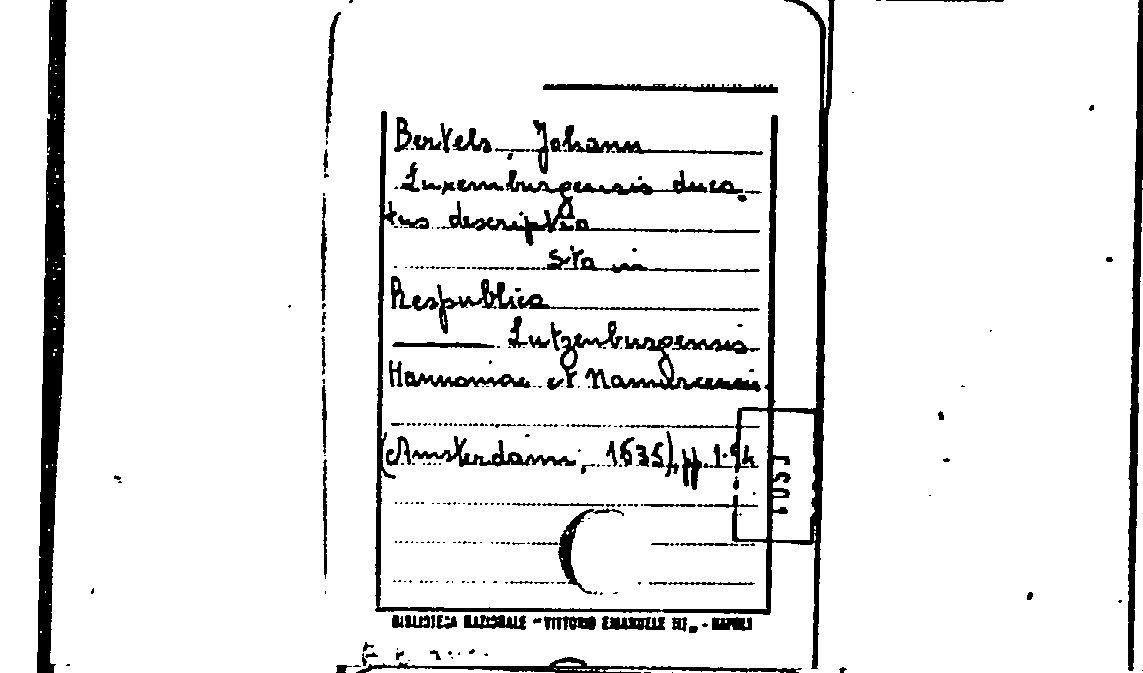 Bertels, Johann
Luxemburgensis duca
tus descriptio
Sta in
Respublica
Lutzenburgensis
Hannoniae et Namurcensis
(Amsterdami, 1635), pp 1-94
BIBLIOTECA NAZIONALE "VITTORIO EMANUELE III" - NAPOLI